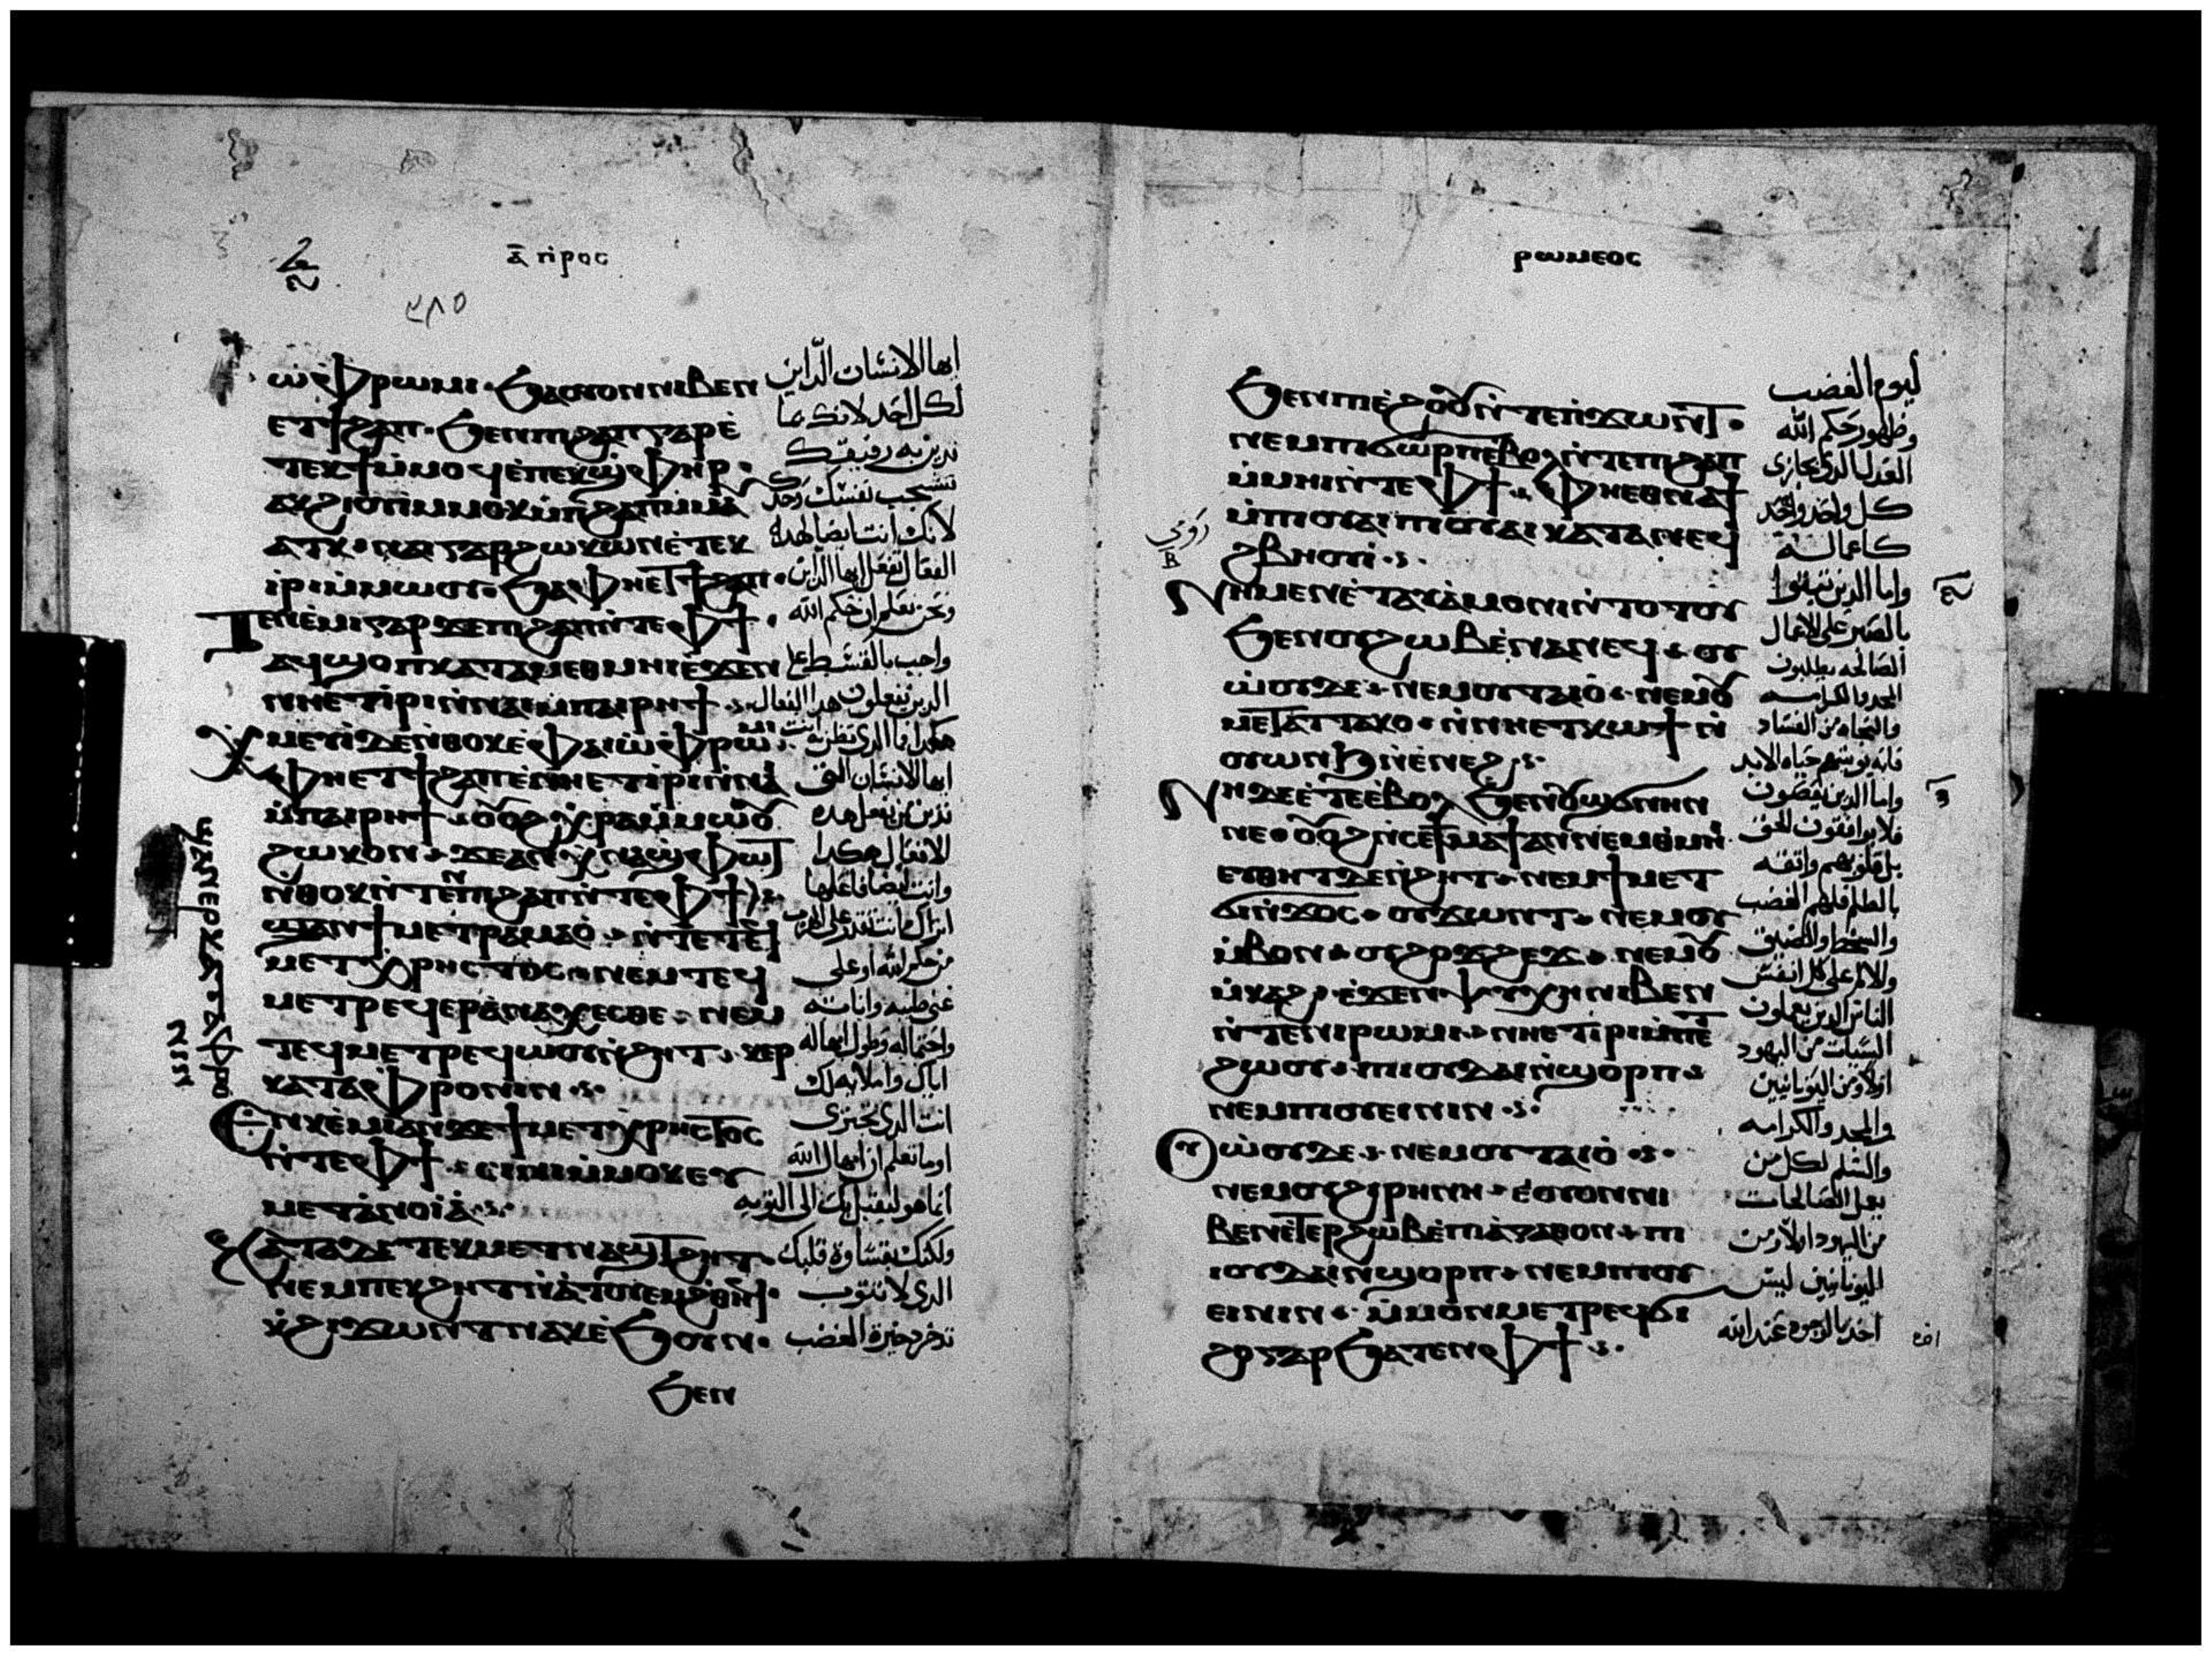 ⲁ̅ ⲡⲣⲟⲥ
٢٨٥
ⲱ̀ ⲫⲣⲱⲙⲓ · ϧⲁⲟⲩⲟⲛⲛⲓⲃⲉⲛ
ⲉⲧϯϩⲁⲡ · ϧⲉⲛⲡⲓϩⲁⲡⲅⲁⲣⲉ̀
ⲧⲉⲕϯⲙ̀ⲙⲟϥⲉ̀ⲡⲉⲕϣ̀ⲫⲏⲣ ·
ⲁⲕϩⲓⲟⲩⲓⲙ̀ⲙⲟⲕⲙ̀ⲡϩⲁⲡⲙ̀ⲙⲁ
ⲩⲁⲧⲕ · ⲛⲁⲓⲅⲁⲣϩⲱⲕⲱⲛⲉ̀ⲧⲉⲕ
ⲓⲣⲓⲙ̀ⲙⲱⲟⲩ · ϧⲁⲫⲏⲉⲧϯϩⲁⲡ ·
ⲧⲉⲛⲉ̀ⲙⲓⲅⲁⲣϫⲉⲡⲓϩⲁⲡⲛ̀ⲧⲉⲫϯ ·
ⲁϥϣⲟⲡⲕⲁⲧⲁⲙⲉⲑⲙⲏⲓⲉ̀ϫⲉⲛ
ⲛⲏⲉⲧⲓ̀ⲣⲓⲛ̀ⲛⲁⲓⲙ̀ⲡⲁⲓⲣⲏϯ
ⲭⲙⲉⲩⲓ̀ϫⲉⲛ̀ⲑⲟⲕⲉ̀ⲫⲁⲓⲱ̀ⲫⲣⲱⲙⲓ
ⲫⲏⲉⲧϯϩⲁⲡⲉ̀ⲛⲏⲉⲧⲓ̀ⲣⲓⲛ̀ⲛⲁⲓ
ⲙ̀ⲡⲁⲓⲣⲏϯ · ⲟⲩⲟϩⲭ̀ⲣⲁⲙ̀ⲙⲱⲟⲩ
ϩⲱⲕⲟⲛ · ϫⲉⲁⲛⲭ̀ⲛⲁϣ̀ⲫⲱⲧ
ⲛ̀ⲑⲟⲕⲛ̀ⲧⲉⲛⲡⲓϩⲁⲡⲛ̀ⲧⲉⲫϯ
ϣⲁⲛϯⲙⲉⲧⲣⲁⲙⲁⲟ̀ · ⲛ̀ⲧⲉⲧⲉϥ
ⲙⲉⲧⲭⲣⲏⲥⲧⲟⲥ ⲛⲉⲙⲧⲉϥ
ⲙⲉⲧⲣⲉϥⲉⲣⲁ̀ⲛⲁⲭⲉⲥⲑⲉ · ⲛⲉⲙ
ⲧⲉϥⲙⲉⲧⲣⲉϥⲱⲟⲩⲛ̀ϩⲏⲧ · ⲕⲉⲣ
ⲕⲁⲧⲁⲫⲣⲟⲛⲓⲛ
ⲉⲛⲕⲉ̀ⲙⲓⲁⲛϫⲉϯⲙⲉⲧⲭⲣⲏⲥⲧⲟⲥ
ⲛ̀ⲧⲉⲫϯ · ⲥⲓⲛⲓⲙ̀ⲙⲟⲕⲉⲩ
ⲙⲉⲧⲁ̀ⲛⲟⲓⲁ̀
ⲕⲁⲧⲁⲇⲉⲧⲉⲕⲙⲉⲧⲛⲁϣⲧϩⲏⲧ ·
ⲛⲉⲙⲡⲉⲕϩⲏⲧⲛ̀ⲁⲧⲟⲩⲉⲙϩⲑⲏϥ ·
ⲭ̀ϩⲓϫⲱⲛⲧⲛⲁⲕⲉ̀ϧⲟⲩⲛ ·
ϧⲉⲛ
ايها الانسان الداين
لكل احد لانك بما
تدين به رفيقك
تشجب نفسك وحدك
لانك انت ايضا لهذه
الفعال تفعل ايها الداين
ونحن نعلم ان حكم الله
واجب بالقسط على
الدين يفعلون هذا الفعال
ايها الانسان
تدين من يفعل هذه
الافعال هكدا
وانت ايضا فاعلها
من حكم الله او على
غنى طيبه واناته
واحتماله وطول امهاله
انت الدي تجتزى
اوما تعلم ان امهال الله
انما هو ليقبل بك الى التوبه
ولكنك بقساوة قلبك
الدي لا تتوب
تدخر دخيرة الغضب
ⲙ̀ⲡⲉⲣⲕⲁⲧⲁⲫⲣⲟ
ⲛⲓⲛ
ⲣⲱⲙⲉⲟⲥ
ϧⲉⲛⲡⲓⲉ̀ϩⲟⲟⲩⲛ̀ⲧⲉⲡ̀ϫⲱⲛⲧ ·
ⲛⲉⲙⲡⲓϭⲱⲣⲡⲉ̀ⲃⲟⲗⲛ̀ⲧⲉⲡⲓϩⲁⲡ
ⲙ̀ⲙⲏⲓⲛ̀ⲧⲉⲫϯ · ⲫⲏⲉⲑⲛⲁϯ
ⲙ̀ⲡⲓⲟⲩⲁⲓⲡⲓⲟⲩⲁⲓⲕⲁⲧⲁⲛⲉϥ
ϩⲃⲏⲟⲩⲓ̀
ⲛⲏⲙⲉⲛⲉ̀ⲧⲁⲩⲁ̀ⲙⲟⲛⲓⲛ̀ⲧⲟⲧⲟⲩ
ϧⲉⲛⲟⲩϩⲱⲃⲉ̀ⲛⲁⲛⲉϥ · ⲟⲩ
ⲱ̀ⲟⲩⲇⲉ · ⲛⲉⲙⲟⲩⲧⲁⲓⲟ̀ · ⲛⲉⲙⲟⲩ
ⲙⲉⲧⲁⲧⲧⲁⲕⲟ · ⲛ̀ⲛⲏⲉⲧⲕⲱϯⲛ̀
ⲟⲩⲱⲛϧⲛ̀ⲉⲛⲉϩ
ⲛⲏⲇⲉⲉ̀ⲧⲉⲉ̀ⲃⲟⲗ ϧⲉⲛⲟⲩϣϭⲛⲏⲛ
ⲛⲉ · ⲟⲩⲟϩⲛ̀ⲥⲉϯⲙⲁϯⲁⲛⲛⲉⲙⲑⲙⲏⲓ
ⲉⲩⲑⲏⲧⲇⲉⲛ̀ϩⲏⲧ · ⲛⲉⲙϯⲙⲉⲧ
ϭⲓⲛ̀ϫⲟⲥ · ⲟⲩϫⲱⲛⲧ · ⲛⲉⲙⲟⲩ
ⲙ̀ⲃⲟⲛ · ⲟⲩϩⲟϫϩⲉϫ · ⲛⲉⲙⲟⲩ
ⲙ̀ⲕⲁϩ · ⲉ̀ϫⲉⲛⲯⲩⲭⲏⲛⲓⲃⲉⲛ
ⲛ̀ⲧⲉⲛⲓⲣⲱⲙⲓ · ⲛⲏⲉⲧⲓ̀ⲣⲓⲙ̀ⲡⲓⲡⲉⲧ
ϩⲱⲟⲩ · ⲡⲓⲓⲟⲩⲇⲁⲓⲛ̀ϣⲟⲣⲡ ·
ⲛⲉⲙⲡⲓⲟⲩⲉⲓⲛⲓⲛ
ⲟⲩⲱ̀ⲟⲩⲇⲉ · ⲛⲉⲙⲟⲩⲧⲁⲓⲟ̀
ⲛⲉⲙⲟⲩϩⲓⲣⲏⲛⲏ · ⲉ̀ⲟⲩⲟⲛⲛⲓ
ⲃⲉⲛⲉ̀ⲧⲉⲣϩⲱⲃⲉ̀ⲡⲓⲁ̀ⲅⲁⲑⲟⲛ · ⲡⲓ
ⲓⲟⲩⲇⲁⲓⲛ̀ϣⲟⲣⲡ · ⲛⲉⲙⲡⲓⲟⲩ
ⲉⲓⲛⲓⲛ · ⲙ̀ⲙⲟⲛⲙⲉⲧⲣⲉϥϭⲓ
ϩⲟⲅⲁⲣϧⲁⲧⲉⲛⲫϯ
ليوم الغضب
وظهور حكم الله
العدل الدي يجازي
كل واحد واحد
كاعماله
واما الدين ثبتوا
بالصبر على الاعمال
الصالحه يطلبون
المجد والكرامه
والنجاه من الفساد
فانه يوتيهم حياه الابد
واما الدين يعصون
فلا يوافقون الحق
بل قلوبهم واثقه
بالظلم فلهم الغضب
والسخط والضيق
والالم على كل انفس
الناس الدين يعملون
السيات من اليهود
اولا ومن اليونانيين
والمجد والكرامه
والسلم لكل من
يعمل الصالحات
من اليهود اولا ومن
اليونانيين ليس
اخد بالوجوه عند الله
رومي